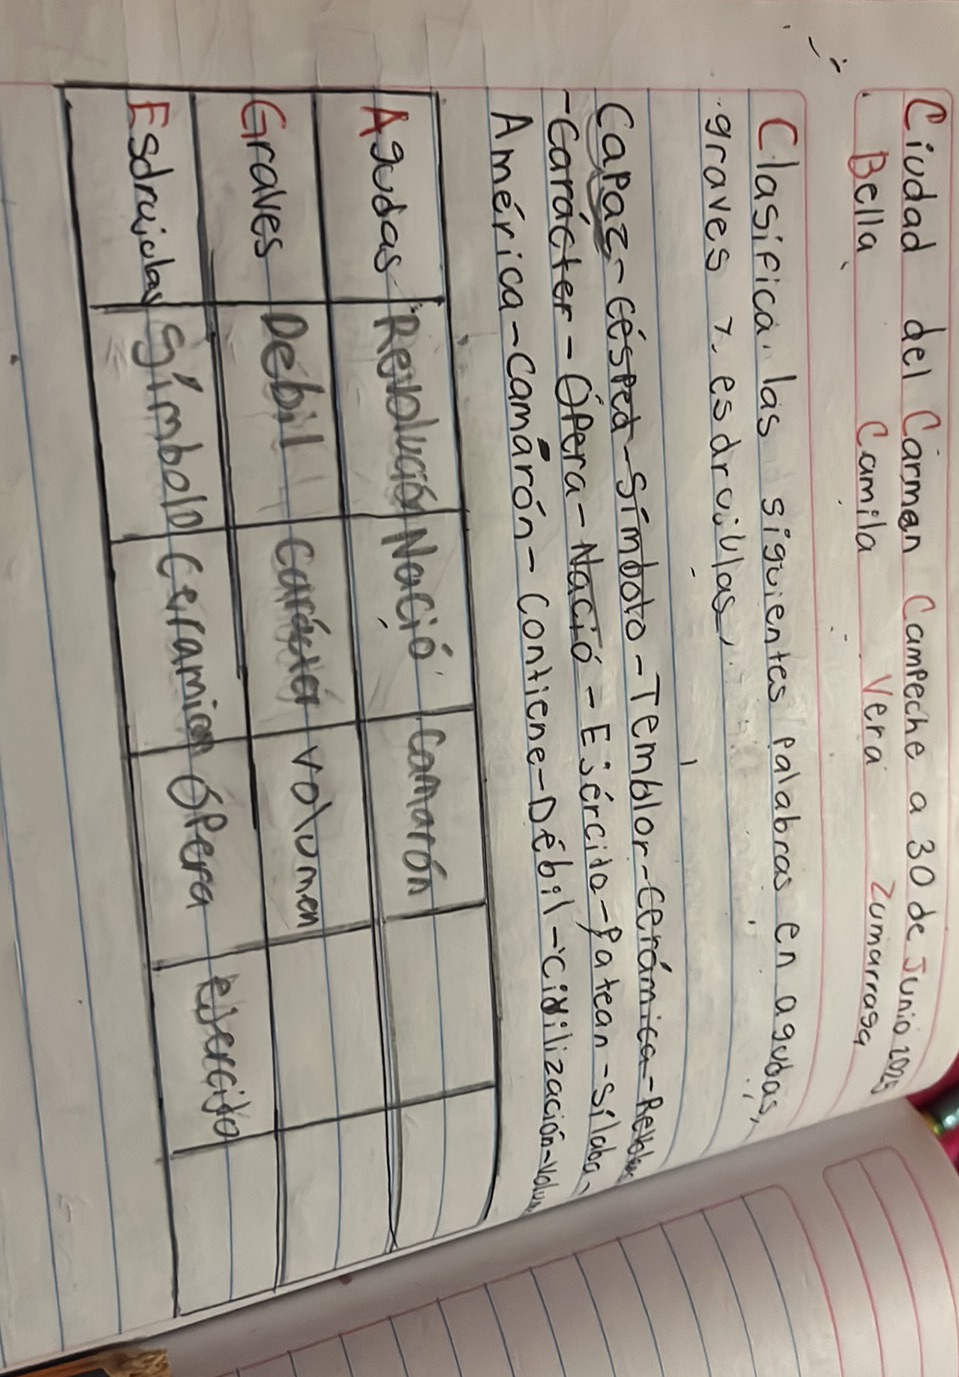 Ciudad del Carman Campeche a 30 de Junio 2025
Bella Camila Vera Zumarraga
Clasifica las siguientes palabras en agudas,
graves y esdruíulas,
Capaz-césped-Símbolo-Temblor-Cerámica-
-Carácter-Ópera-Nació-Ejército-Patean-sílaba-
América-camarón-contiene-Débil-civilización-
Agudas Revolución Nació camarón
Graves Debil Carácter volumen
Esdruiulas Símbolo Ceramica Ópera ejercito